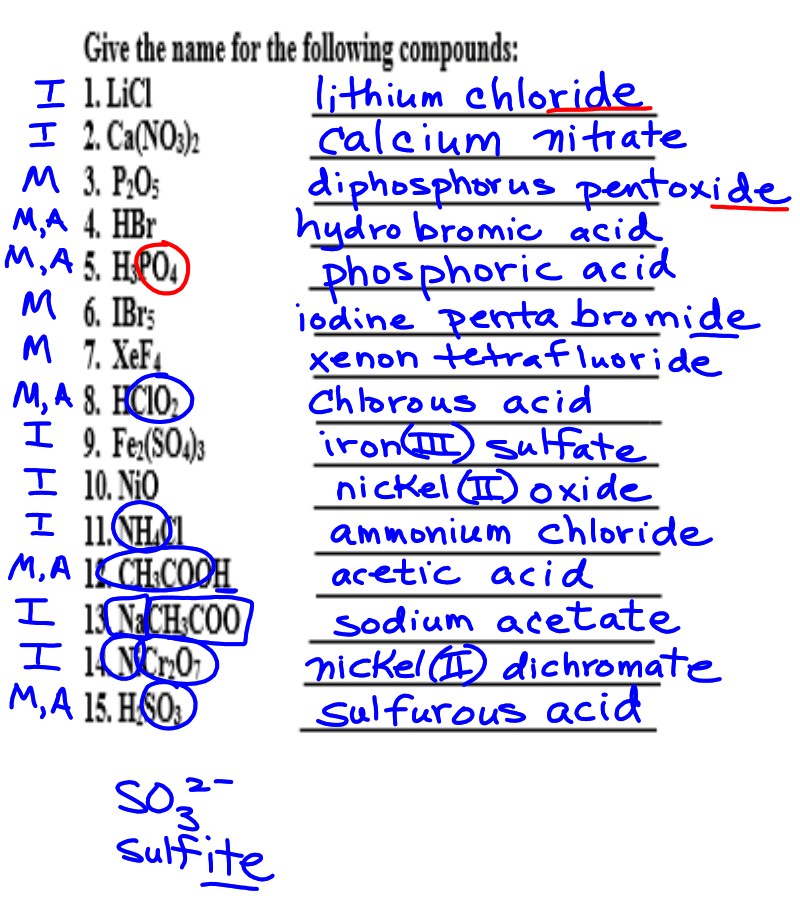 Give the name for the following compounds:
I 1. LiCl lithium chloride
I 2. Ca(NO₃)₂ calcium nitrate
M 3. P₂O₅ diphosphorus pentoxide
M,A 4. HBr hydrobromic acid
M,A 5. H₃PO₄ phosphoric acid
M 6. IBr₅ iodine pentabromide
M 7. XeF₄ xenon tetrafluoride
M,A 8. HClO₂ chlorous acid
I 9. Fe₂(SO₄)₃ iron(III) sulfate
I 10. NiO nickel(II) oxide
I 11. NH₄Cl ammonium chloride
M,A 12. CH₃COOH acetic acid
I 13. NaCH₃COO sodium acetate
I 14. NiCr₂O₇ nickel(II) dichromate
M,A 15. H₂SO₃ sulfurous acid
SO₃²⁻
sulfite